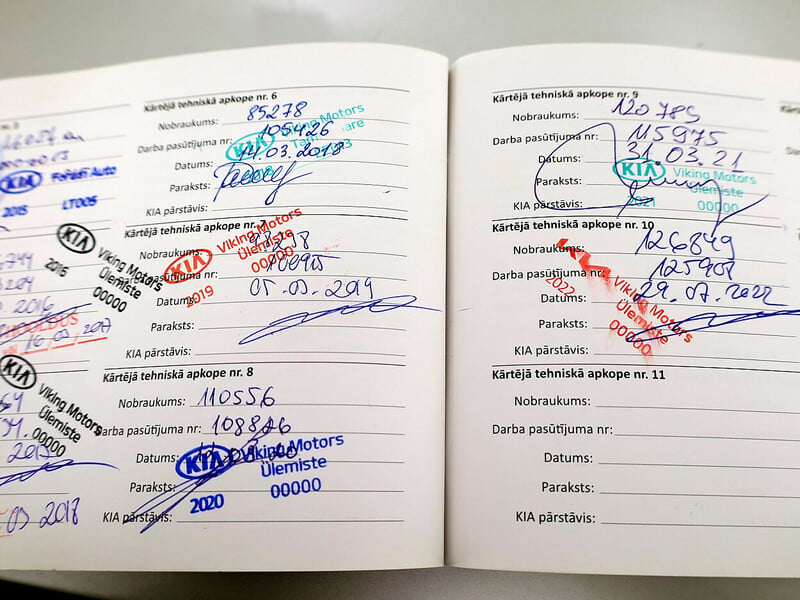 KIA Forśśi Auto
2015 LT005
KIA
2016
Viking Motors
Ülemiste
00000
2016
16.03.2017
KIA
Viking Motors
Ülemiste
00000
03.2018
Kārtējā tehniskā apkope nr. 6
Nobraukums: 85278
Darba pasūtījuma nr: 105426
Datums: 14.03.2018
Paraksts:
KIA pārstāvis:
KIA Viking Motors
Kārtējā tehniskā apkope nr. 7
Nobraukums:
Darba pasūtījuma nr:
Datums: 05.03.2019
Paraksts:
KIA pārstāvis:
KIA Viking Motors
Ülemiste
2019 00000
Kārtējā tehniskā apkope nr. 8
Nobraukums: 110556
Darba pasūtījuma nr: 108826
Datums:
Paraksts:
KIA pārstāvis:
KIA Viking Motors
Ülemiste
2020 00000
Kārtējā tehniskā apkope nr. 9
Nobraukums: 120789
Darba pasūtījuma nr: 115975
Datums: 31.03.21
Paraksts:
KIA pārstāvis:
KIA Viking Motors
Ülemiste
2021 00000
Kārtējā tehniskā apkope nr. 10
Nobraukums: 126849
Darba pasūtījuma nr: 125901
Datums: 29.07.2022
Paraksts:
KIA pārstāvis:
KIA Viking Motors
Ülemiste
2022 00000
Kārtējā tehniskā apkope nr. 11
Nobraukums:
Darba pasūtījuma nr:
Datums:
Paraksts:
KIA pārstāvis: